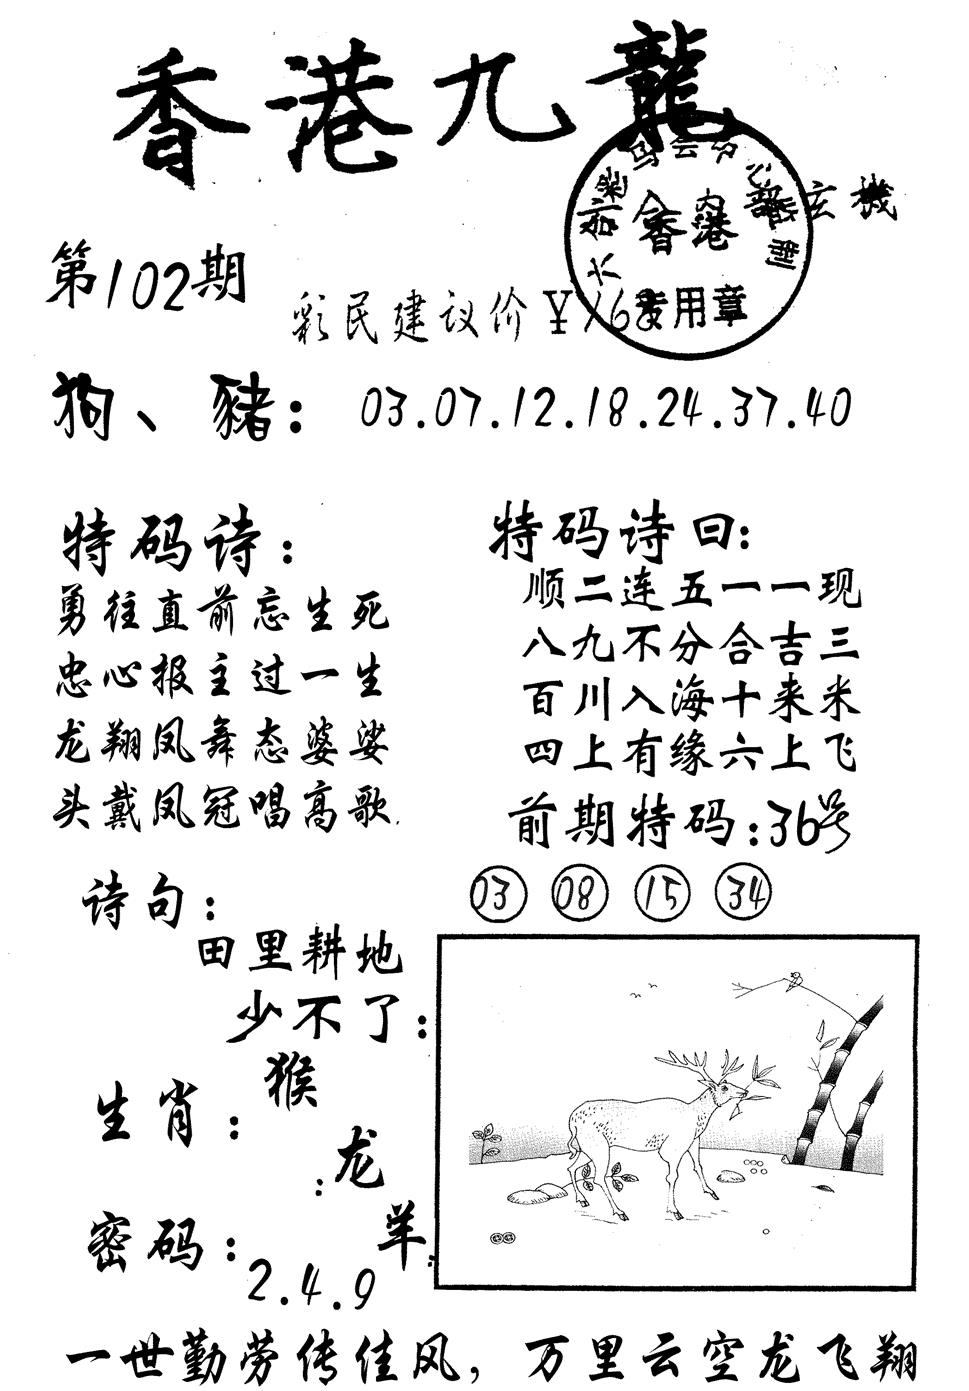 香港九龍
内部玄機
香港
专用章
第102期
彩民建议价￥168
狗、豬：03.07.12.18.24.37.40
特码诗：
勇往直前忘生死
忠心报主过一生
龙翔凤舞态婆娑
头戴凤冠唱高歌.
特码诗曰：
顺二连五一一现
八九不分合吉三
百川入海十来米
四上有缘六上飞
前期特码：36号
03 08 15 34
诗句：
田里耕地
少不了：
生肖：猴
：龙
羊.
密码：2.4.9
一世勤劳传佳风，万里云空龙飞翔